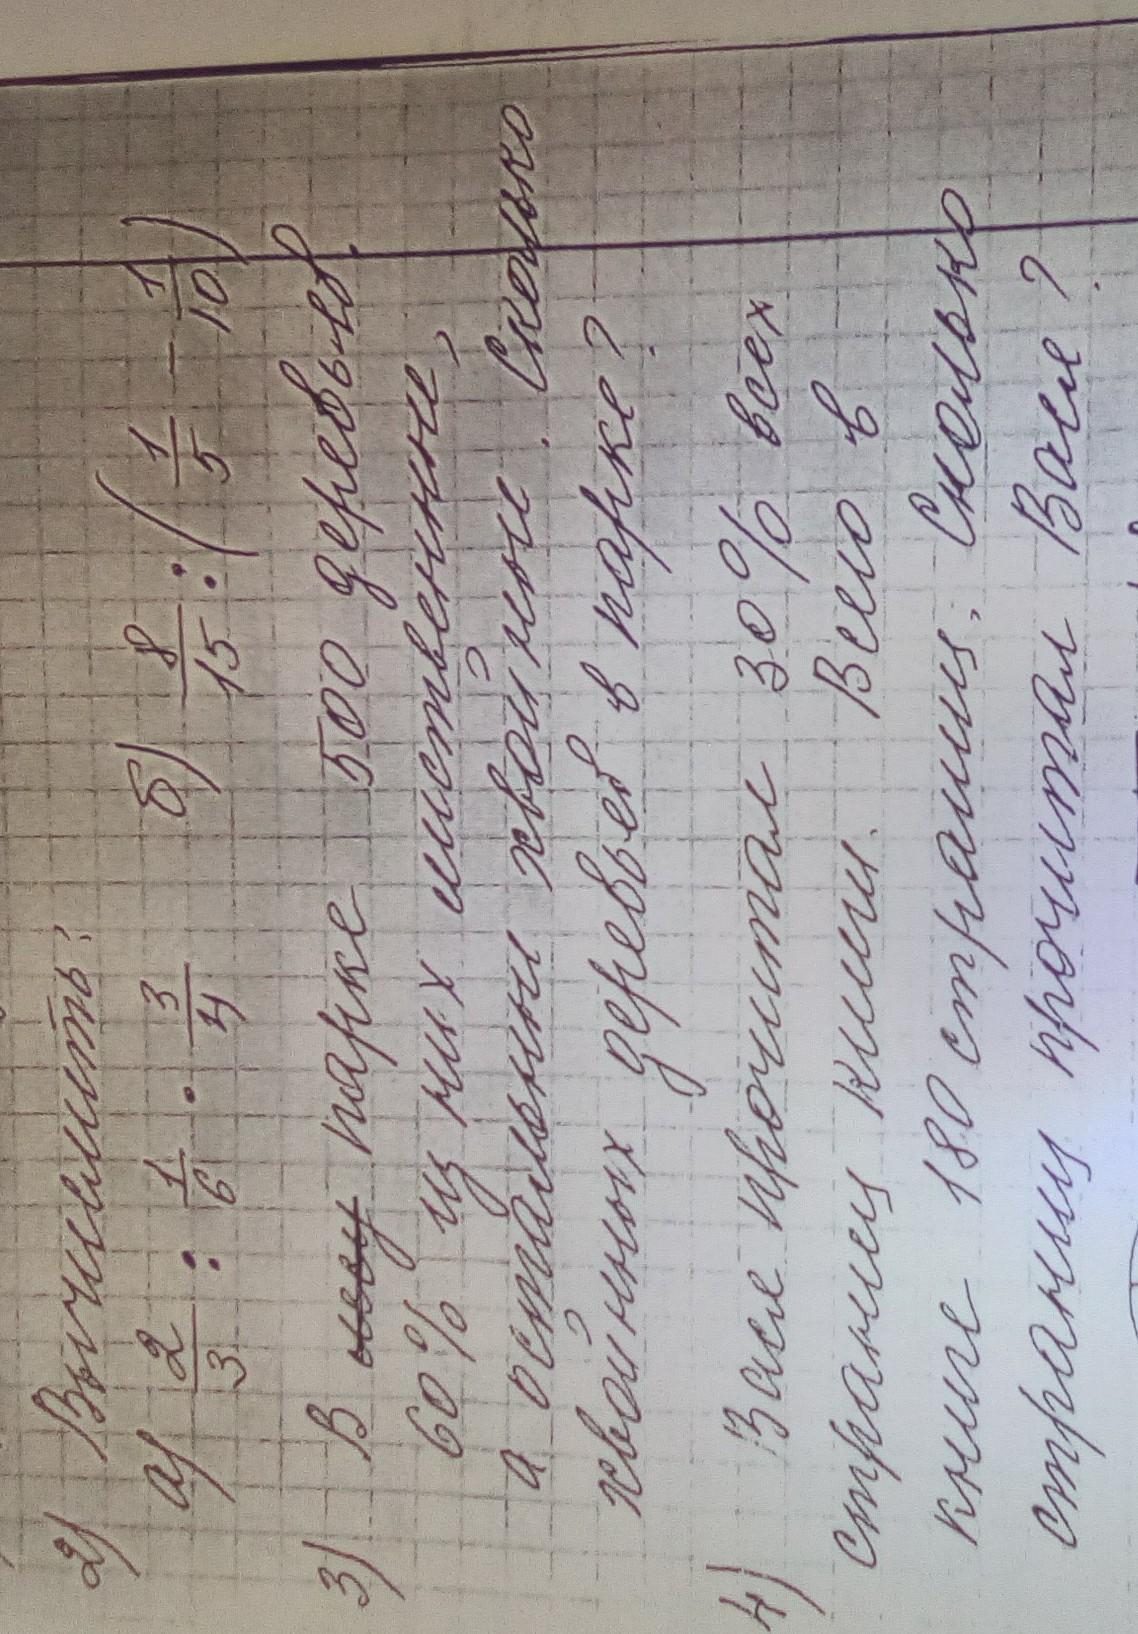 2) Вычислить:
а) 2/3 : 1/6 · 3/4 б) 8/15 : (1/5 - 1/10)
3) В парке 500 деревьев.
60% из них лиственные,
а остальные хвойные. Сколько
хвойных деревьев в парке?
4) Вале прочитал 30% всех
страниц книги. Всего в
книге 180 страниц. Сколько
страниц прочитал Вале?